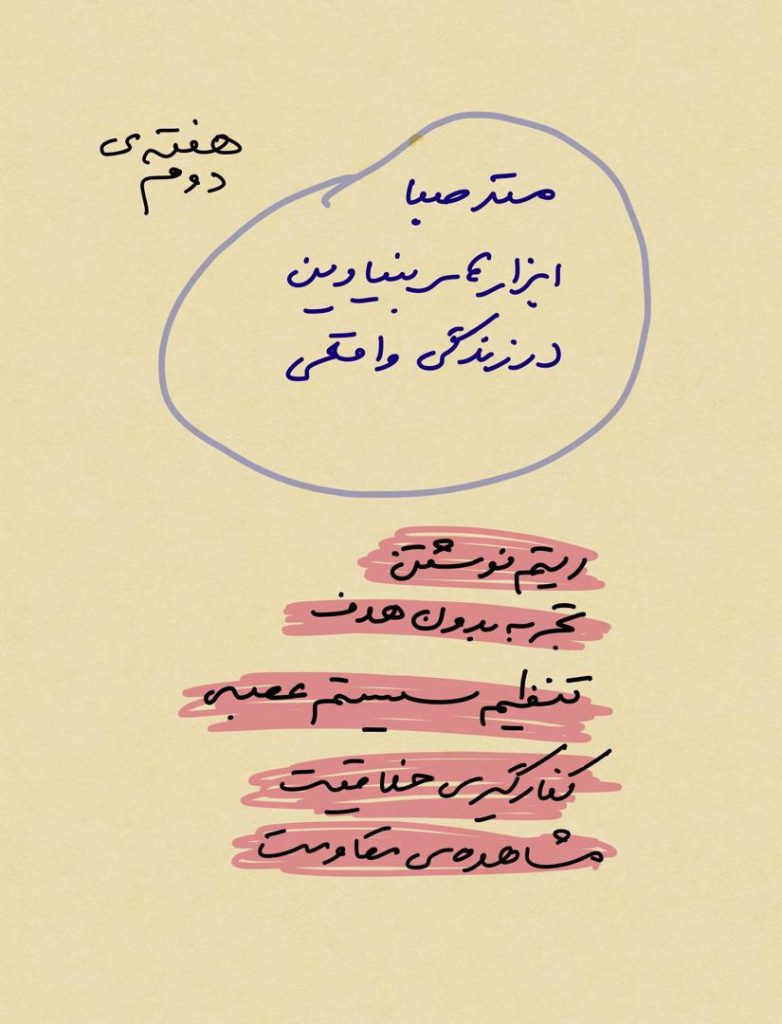 هفته‌ی
دوم
متد صبا
ابزارهای بنیادین
در زندگی واقعی
ریتم نوشتن
تجربه بدون هدف
تنظیم سیستم عصبی
کنارگیری خلاقیت
مشاهده‌ی مقاومت